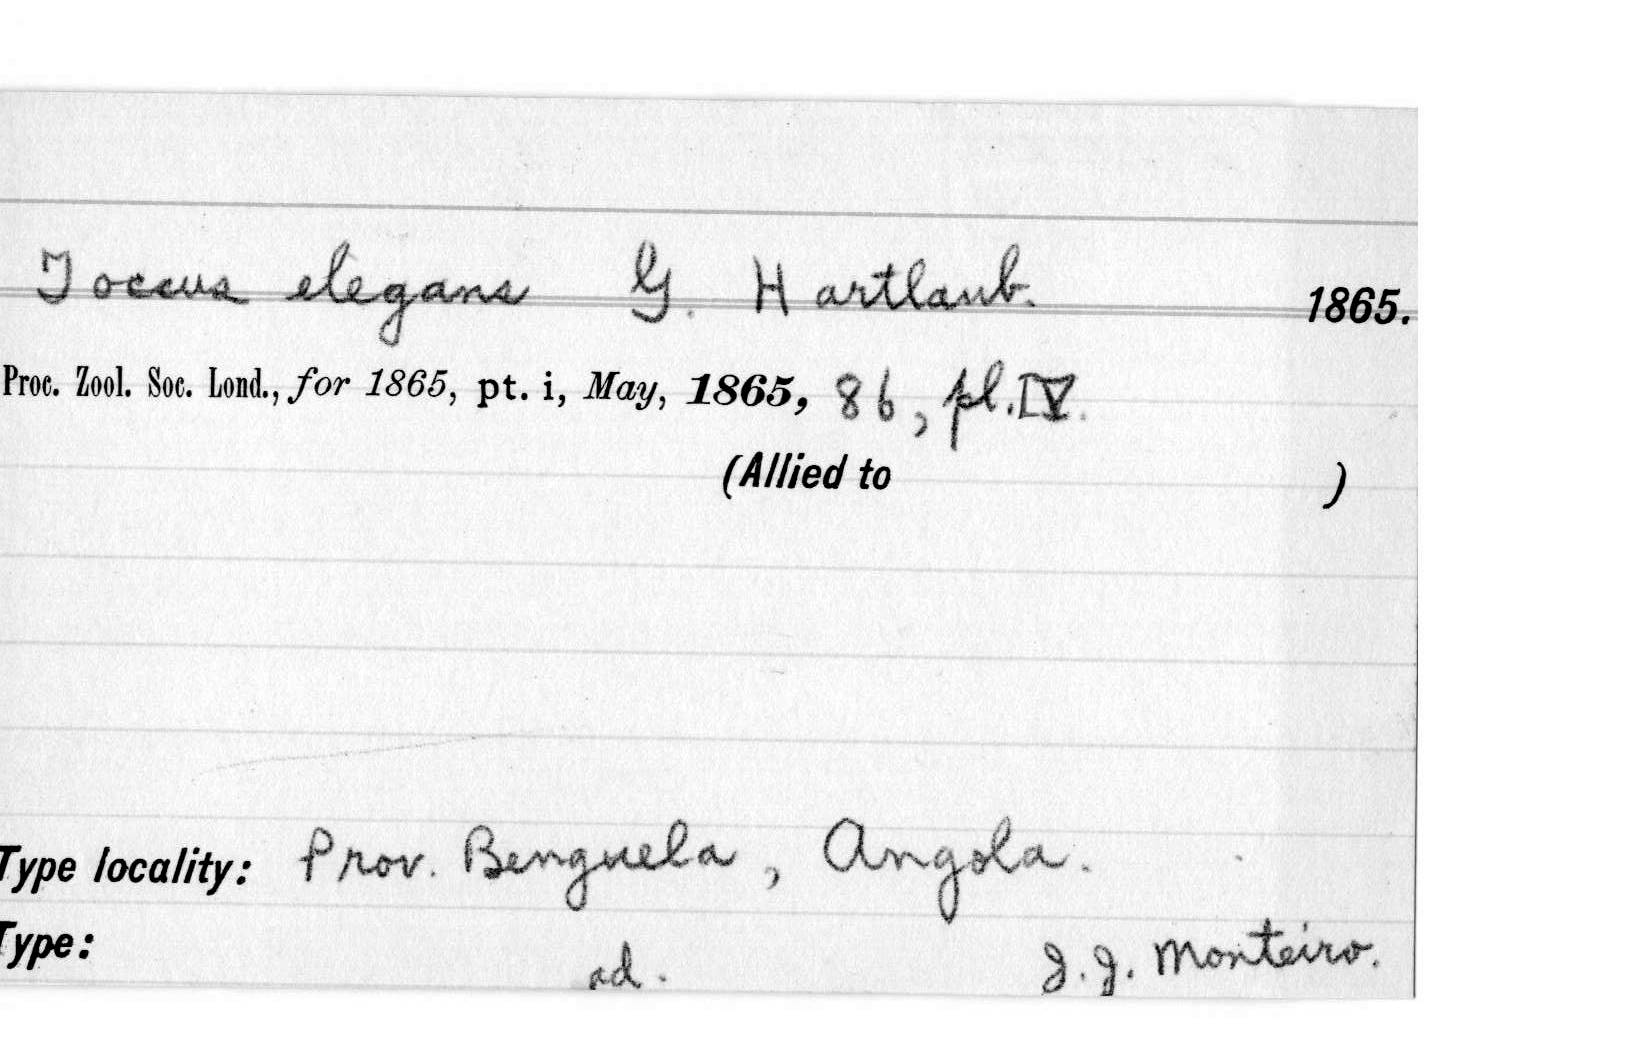 Toccus elegans G. Hartlaub. 1865.
Proc. Zool. Soc. Lond., for 1865, pt. i, May, 1865, 86, pl. IV.
(Allied to )
Type locality: Prov. Benguela, Angola.
Type: ad. J. J. Monteiro.